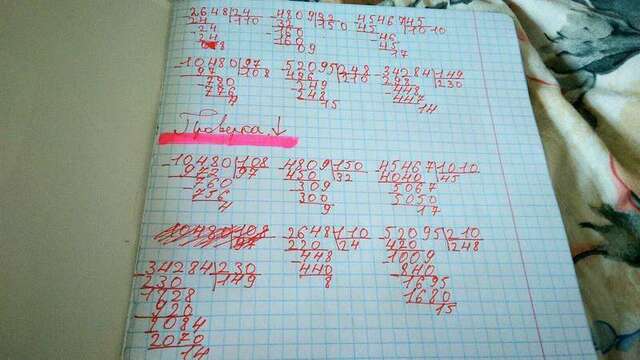 2648|24 4809|32 45467|45
24 |110 32 |150 45 |1010
-24 -160 -46
24 160 45
8 09 17
-10480|97 52095|248 -34284|149
97 |108 496 |210 298 |230
-780 -249 -448
776 248 447
4 15 14
Проверка ↓
-10480|108 4809|150 -45467|1010
972 |97 450 |32 4040 |45
-760 -309 -5067
756 300 5050
4 9 17
10480|108 2648|110 52095|210
97 220 |24 420 |248
-34284|230 -448 -1009
230 |149 440 840
-1128 8 -1695
920 1680
-2084 15
2070
14